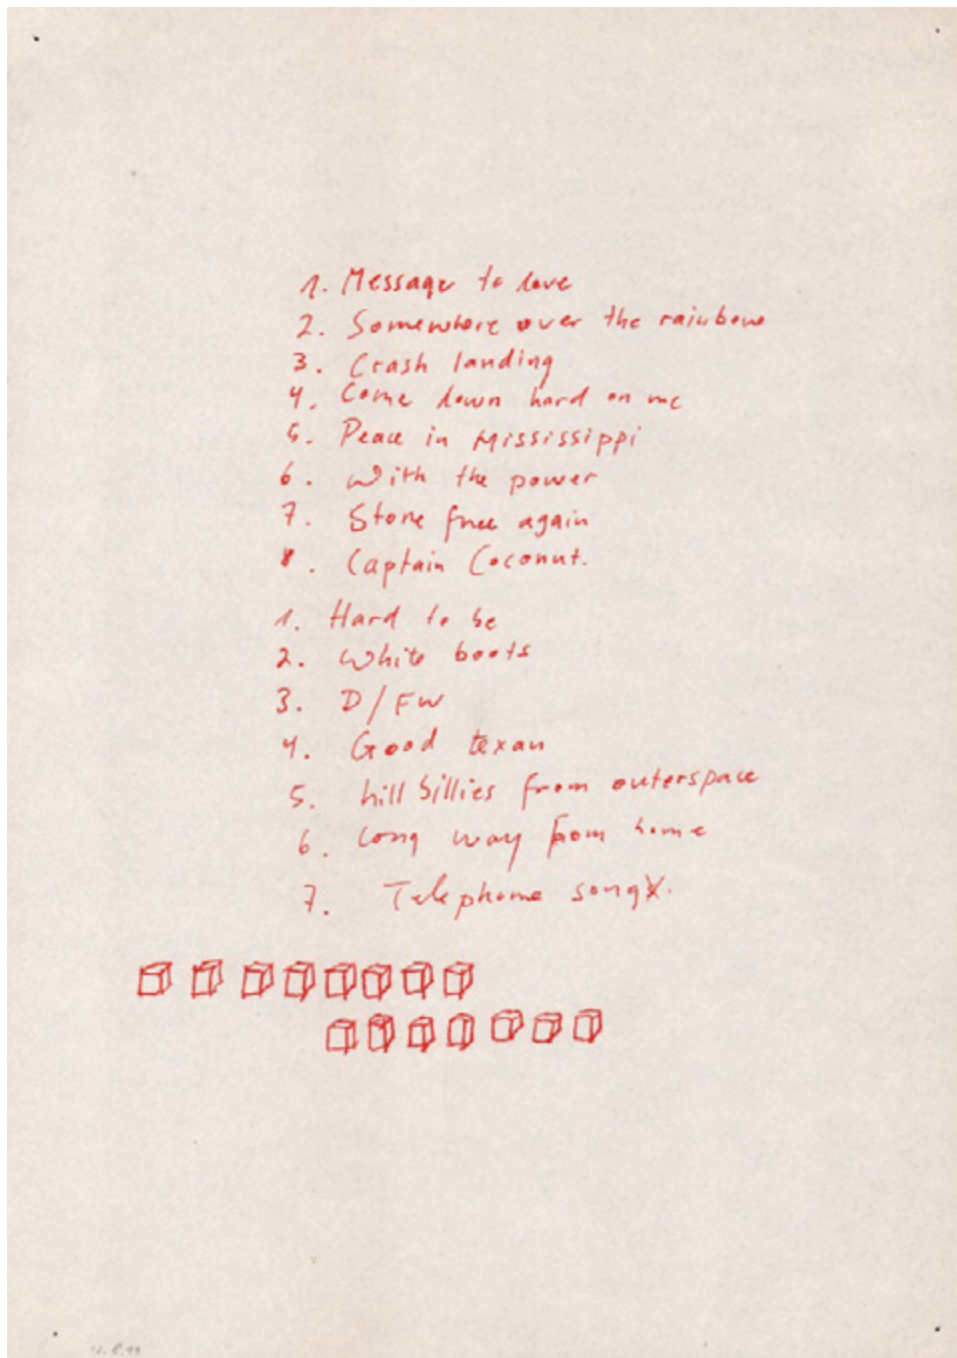 1. Message to love
2. Somewhere over the rainbow
3. Crash landing
4. Come down hard on me
5. Peace in Mississippi
6. With the power
7. Stone free again
8. Captain Coconut.
1. Hard to be
2. White boots
3. D/FW
4. Good texan
5. hill billies from outerspace
6. Long way from home
7. Telephone song